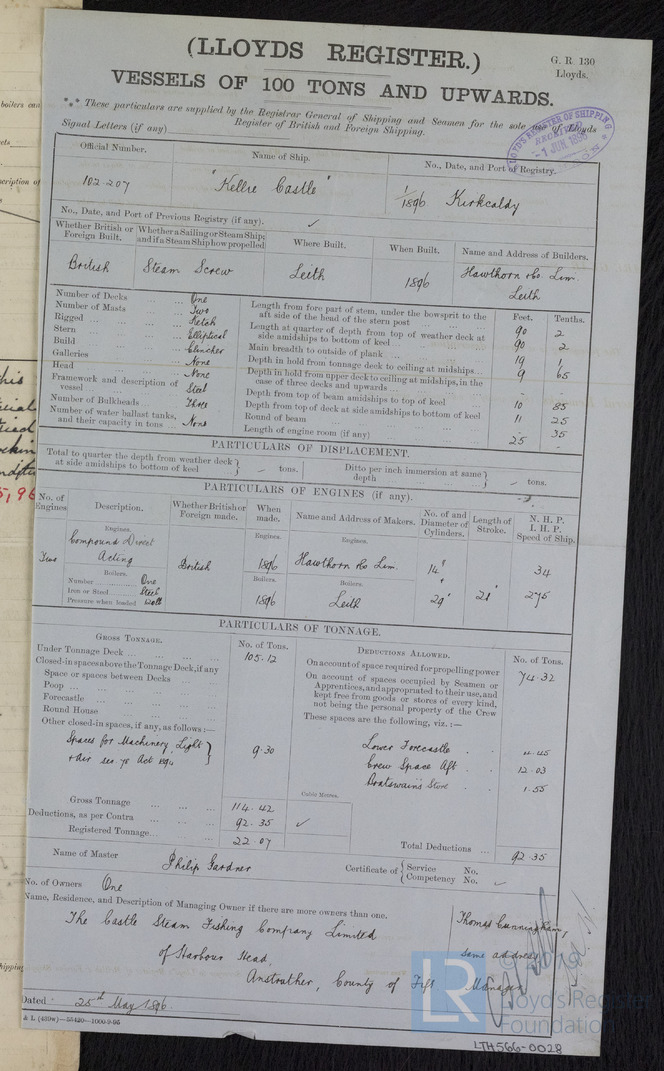 (LLOYDS REGISTER.)
G. R. 130
Lloyds.
VESSELS OF 100 TONS AND UPWARDS.
*** These particulars are supplied by the Registrar General of Shipping and Seamen for the sole use of Lloyds
Register of British and Foreign Shipping.
Signal Letters (if any)
LLOYD'S REGISTER OF SHIPPING
RECEIVED
1 JUN 1896
Official Number.
Name of Ship.
No., Date, and Port of Registry.
102.207
"Kellie Castle"
1/1896 Kirkcaldy
No., Date, and Port of Previous Registry (if any).
Whether British or Foreign Built.
Whether a Sailing or Steam Ship; and if a Steam Ship how propelled
Where Built.
When Built.
Name and Address of Builders.
British
Steam Screw
Leith
1896
Hawthorn & Co. Lim.
Leith
Number of Decks ... One
Number of Masts ... Two
Rigged ... Ketch
Stern ... Elliptical
Build ... Clincher
Galleries ... None
Head ... None
Framework and description of vessel ... Steel
Number of Bulkheads ... Three
Number of water ballast tanks, and their capacity in tons ... None
Feet. Tenths.
Length from fore part of stem, under the bowsprit to the aft side of the head of the stern post 90 2
Length at quarter of depth from top of weather deck at side amidships to bottom of keel 90 2
Main breadth to outside of plank ... 19 1
Depth in hold from tonnage deck to ceiling at midships ... 9 65
Depth in hold from upper deck to ceiling at midships, in the case of three decks and upwards ... - -
Depth from top of beam amidships to top of keel 10 85
Depth from top of deck at side amidships to bottom of keel 11 25
Round of beam ... 35
Length of engine room (if any) 25 -
PARTICULARS OF DISPLACEMENT.
Total to quarter the depth from weather deck at side amidships to bottom of keel } tons.
Ditto per inch immersion at same depth } tons.
PARTICULARS OF ENGINES (if any).
No. of Engines
Description.
Whether British or Foreign made.
When made.
Name and Address of Makers.
No. of and Diameter of Cylinders.
Length of Stroke.
N. H. P.
I. H. P.
Speed of Ship.
Engines.
Engines.
Engines.
Compound Direct
Acting
Two
British
1896
Hawthorn & Co Lim.
14"
34
Boilers.
Boilers.
Boilers.
Number ... One
Iron or Steel ... Steel
Pressure when loaded
1896
Leith
29"
21"
275
PARTICULARS OF TONNAGE.
GROSS TONNAGE.
No. of Tons.
Under Tonnage Deck ... 105.12
Closed-in spaces above the Tonnage Deck, if any
Space or spaces between Decks
Poop ...
Forecastle ...
Round House ...
Other closed-in spaces, if any, as follows:—
Spaces for Machinery, Light
& Air Act 1894 } 9.30
Gross Tonnage ... 114.42
Deductions, as per Contra ... 92.35
Registered Tonnage... 22.07
Cubic Metres.
DEDUCTIONS ALLOWED.
No. of Tons.
On account of space required for propelling power 74.32
On account of spaces occupied by Seamen or Apprentices, and appropriated to their use, and kept free from goods or stores of every kind, not being the personal property of the Crew
These spaces are the following, viz.:—
Lower Forecastle . . 4.45
Crew Space Aft . . 12.03
Boatswain's Store . 1.55
Total Deductions ... 92.35
Name of Master
Philip Gardner
Certificate of { Service No.
Competency No.
No. of Owners One
Name, Residence, and Description of Managing Owner if there are more owners than one.
The Castle Steam Fishing Company Limited
of Harbour Head,
Anstruther, County of Fife
Thomas Cunningham,
same address
Manager
Dated 25th May 1896.
& L (439w)—55420—1000-9-95
LR
Lloyd's Register
Foundation
LTH566-0028